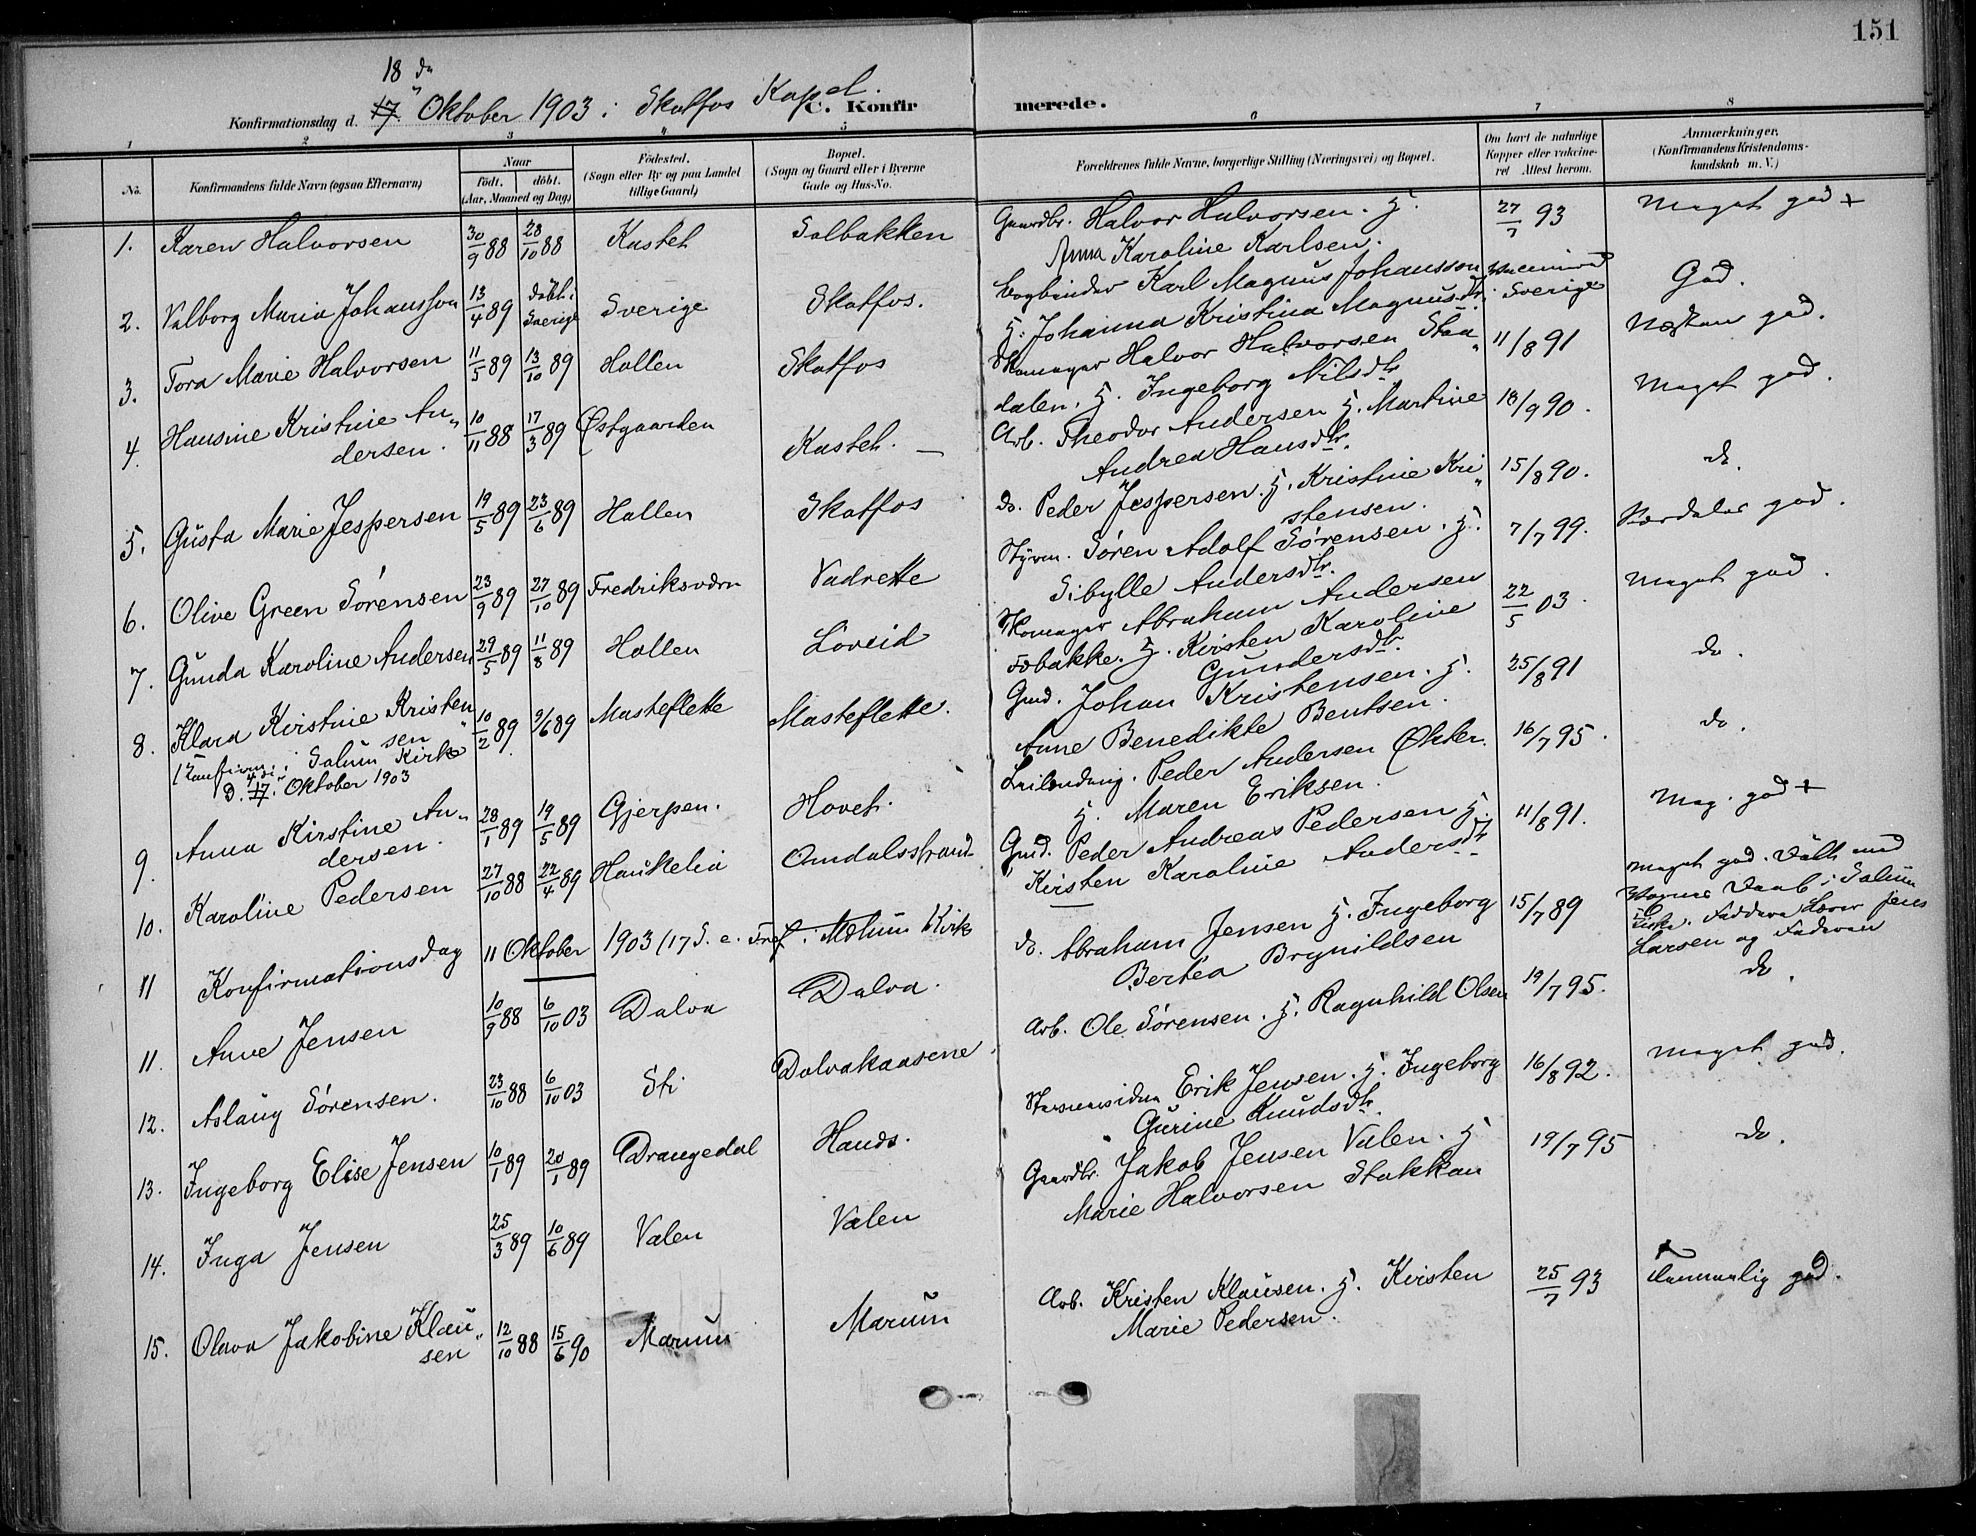 151
18 de
Konfirmationsdag d. 17. Oktober 1903 i Skotfos Kapel.
C. Konfirmerede.
1 2 3 4 5 6 7 8
No. Konfirmandens fulde Navn (ogsaa Efternavn) Naar født. døbt. (Aar, Maaned og Dag) Fødested. (Sogn eller By og paa Landet tillige Gaard) Bopæl. (Sogn og Gaard eller i Byerne Gade og Hus-No. Forældrenes fulde Navne, borgerlige Stilling (Næringsvei) og Bopæl. Om havt de naturlige Kopper eller vaccineret Attest herom. Anmærkninger. (Konfirmandens Kristendomskundskab m. V.)
1. Karen Halvorsen 30/9 88 28/10 88 Kastet Solbakken Gaardbr. Halvor Halvorsen. H. Anna Karoline Karlsen. 27/7 93 Meget god +
2. Valborg Maria Johansson 13/4 89 døbt i Sverige Sverige Skotfos. Bogbinder Karl Magnus Johansson H. Johanna Kristina Magnusdtr. i Sverige God.
3. Tora Marie Halvorsen 11/5 89 13/10 89 Hollen Skotfos Skomager Halvor Halvorsen Staadalen. H. Ingeborg Nilsdtr 11/8 91 Næsten god.
4. Hansine Kristine Andersen. 10/11 88 17/3 89 Østgaarden Kastet. — Arb. Theodor Andersen H. Martine Andrea Hansdtr. 18/9 90. Meget god.
5. Gusta Marie Jespersen 19/5 89 23/6 89 Hollen Skotfos do. Peder Jespersen. H. Kristine Kristensen. 15/8 90. do.
6. Olive Green Sørensen 23/9 89 27/10 89 Fredriksværn Vadrette Styrm. Søren Adolf Sørensen. H. Sibylle Andersdtr. 7/7 99. Særdeles god.
7. Gunda Karoline Andersen 29/5 89 11/8 89 Hollen Løveid Skomager Abraham Andersen H. Kirsten Karoline Gundersdtr. 22/5 03. Meget god.
8. Klara Kirstine Kristensen 10/2 89 9/6 89 Masteflette Masteflette. Gmd. Johan Kristensen. H. Anne Benedikte Bentsen. 25/8 91 do.
(Konfirm. i Solum Kirke
D. 4de 17. Oktober 1903
9. Anna Kirstine Andersen. 28/1 89 19/5 89 Gjerpen. Hovet. Leilending. Peder Andersen Økter. H. Maren Eriksen. 16/7 95. do.
10. Karoline Pedersen 27/10 88 22/4 89 Haukelia Omdalsstrand Gmd. Peder Andreas Pedersen H. Kirsten Karoline Andersdtr 11/8 91. Meg. god +
11 Konfirmationsdag 11 Oktober 1903 (17 S. e. Tref. i Melum Kirke
11. Anne Jensen 10/9 88 6/10 03 Dalva Dalva. do. Abraham Jensen H. Ingeborg Bertea Brynildsen 15/7 89 Meget god. Døbt med Voxnes Daab i Solum Kirke. Faddere Lærer Jens Larsen og Faderen
12. Aslaug Sørensen. 23/10 88 6/10 03 Sti Dalvakaasene Arb. Ole Sørensen. H. Ragnhild Olsen 19/7 95. do.
13. Ingeborg Elise Jensen 10/1 89 20/1 89 Drangedal Hands. Erik Jensen. H. Ingeborg Gurine Knudsdtr. 16/8 92. Meget god.
14. Inga Jensen 25/3 89 10/6 89 Valen Valen Gaardbr. Jakob Jensen Valen. H Marie Halvorsen Stokkan 19/7 95 do.
15. Olava Jakobine Klausen 12/10 88 15/6 90 Marum Marum Arb. Kristen Klausen. H. Kirsten Marie Pedersen. 25/7 93 Temmelig god.